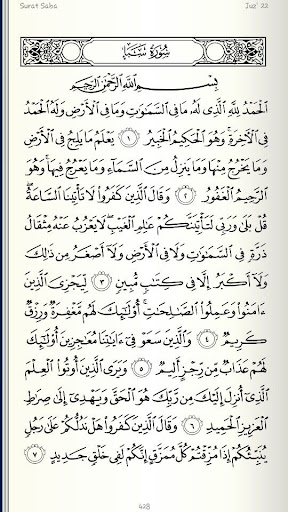 Surat Saba Juz' 22
سُورَةُ سَبَإٍ
بِسْمِ اللَّهِ الرَّحْمَٰنِ الرَّحِيمِ
الْحَمْدُ لِلَّهِ الَّذِي لَهُ مَا فِي السَّمَاوَاتِ وَمَا فِي الْأَرْضِ وَلَهُ الْحَمْدُ
فِي الْآخِرَةِ ۚ وَهُوَ الْحَكِيمُ الْخَبِيرُ ١ يَعْلَمُ مَا يَلِجُ فِي الْأَرْضِ
وَمَا يَخْرُجُ مِنْهَا وَمَا يَنزِلُ مِنَ السَّمَاءِ وَمَا يَعْرُجُ فِيهَا ۚ وَهُوَ
الرَّحِيمُ الْغَفُورُ ٢ وَقَالَ الَّذِينَ كَفَرُوا لَا تَأْتِينَا السَّاعَةُ ۖ
قُلْ بَلَىٰ وَرَبِّي لَتَأْتِيَنَّكُمْ عَالِمِ الْغَيْبِ ۖ لَا يَعْزُبُ عَنْهُ مِثْقَالُ
ذَرَّةٍ فِي السَّمَاوَاتِ وَلَا فِي الْأَرْضِ وَلَا أَصْغَرُ مِن ذَٰلِكَ
وَلَا أَكْبَرُ إِلَّا فِي كِتَابٍ مُّبِينٍ ٣ لِّيَجْزِيَ الَّذِينَ
آمَنُوا وَعَمِلُوا الصَّالِحَاتِ ۚ أُولَٰئِكَ لَهُم مَّغْفِرَةٌ وَرِزْقٌ
كَرِيمٌ ٤ وَالَّذِينَ سَعَوْ فِي آيَاتِنَا مُعَاجِزِينَ أُولَٰئِكَ
لَهُمْ عَذَابٌ مِّن رِّجْزٍ أَلِيمٌ ٥ وَيَرَى الَّذِينَ أُوتُوا الْعِلْمَ
الَّذِي أُنزِلَ إِلَيْكَ مِن رَّبِّكَ هُوَ الْحَقَّ وَيَهْدِي إِلَىٰ صِرَاطِ
الْعَزِيزِ الْحَمِيدِ ٦ وَقَالَ الَّذِينَ كَفَرُوا هَلْ نَدُلُّكُمْ عَلَىٰ رَجُلٍ
يُنَبِّئُكُمْ إِذَا مُزِّقْتُمْ كُلَّ مُمَزَّقٍ إِنَّكُمْ لَفِي خَلْقٍ جَدِيدٍ ٧
428